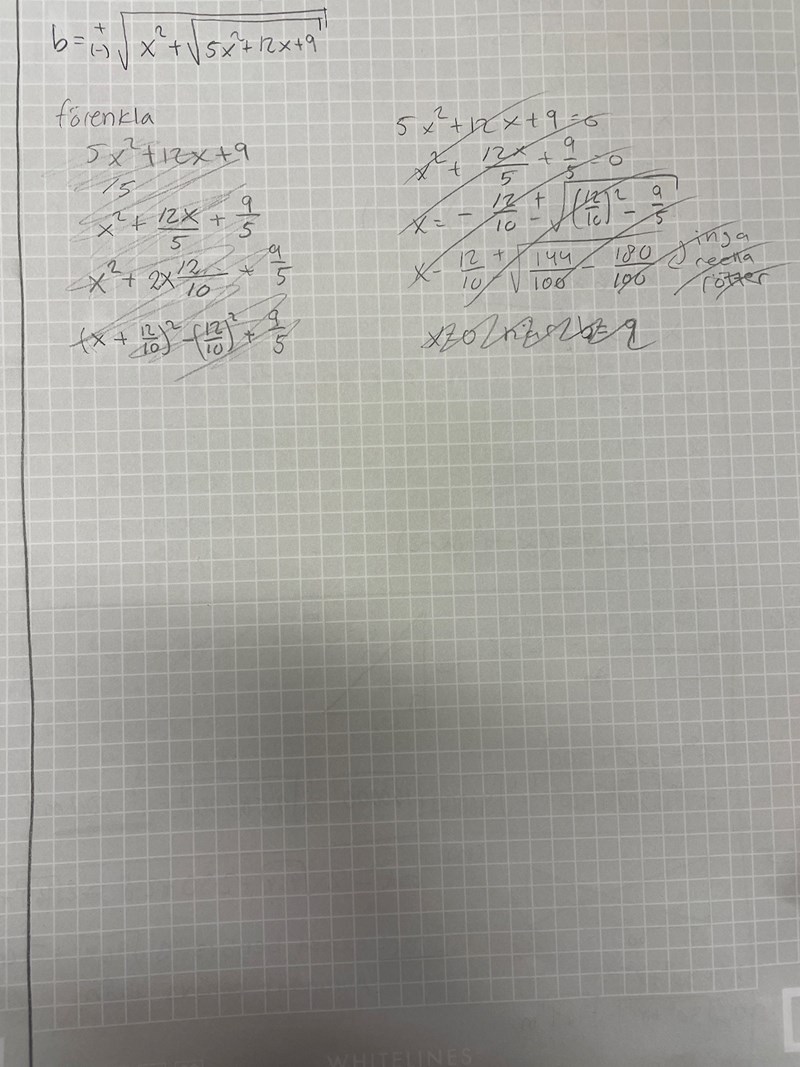 b = ± (-) √(x² + √(5x² + 12x + 9))
förenkla
5x² + 12x + 9
/5
x² + 12x/5 + 9/5
x² + 2x 12/10 + 9/5
(x + 12/10)² - (12/10)² + 9/5
5x² + 12x + 9 = 0
x² + 12x/5 + 9/5 = 0
x = - 12/10 ± √((12/10)² - 9/5)
x - 12/10 ± √(144/100 - 180/100) inga
reella
rötter
WHITELINES